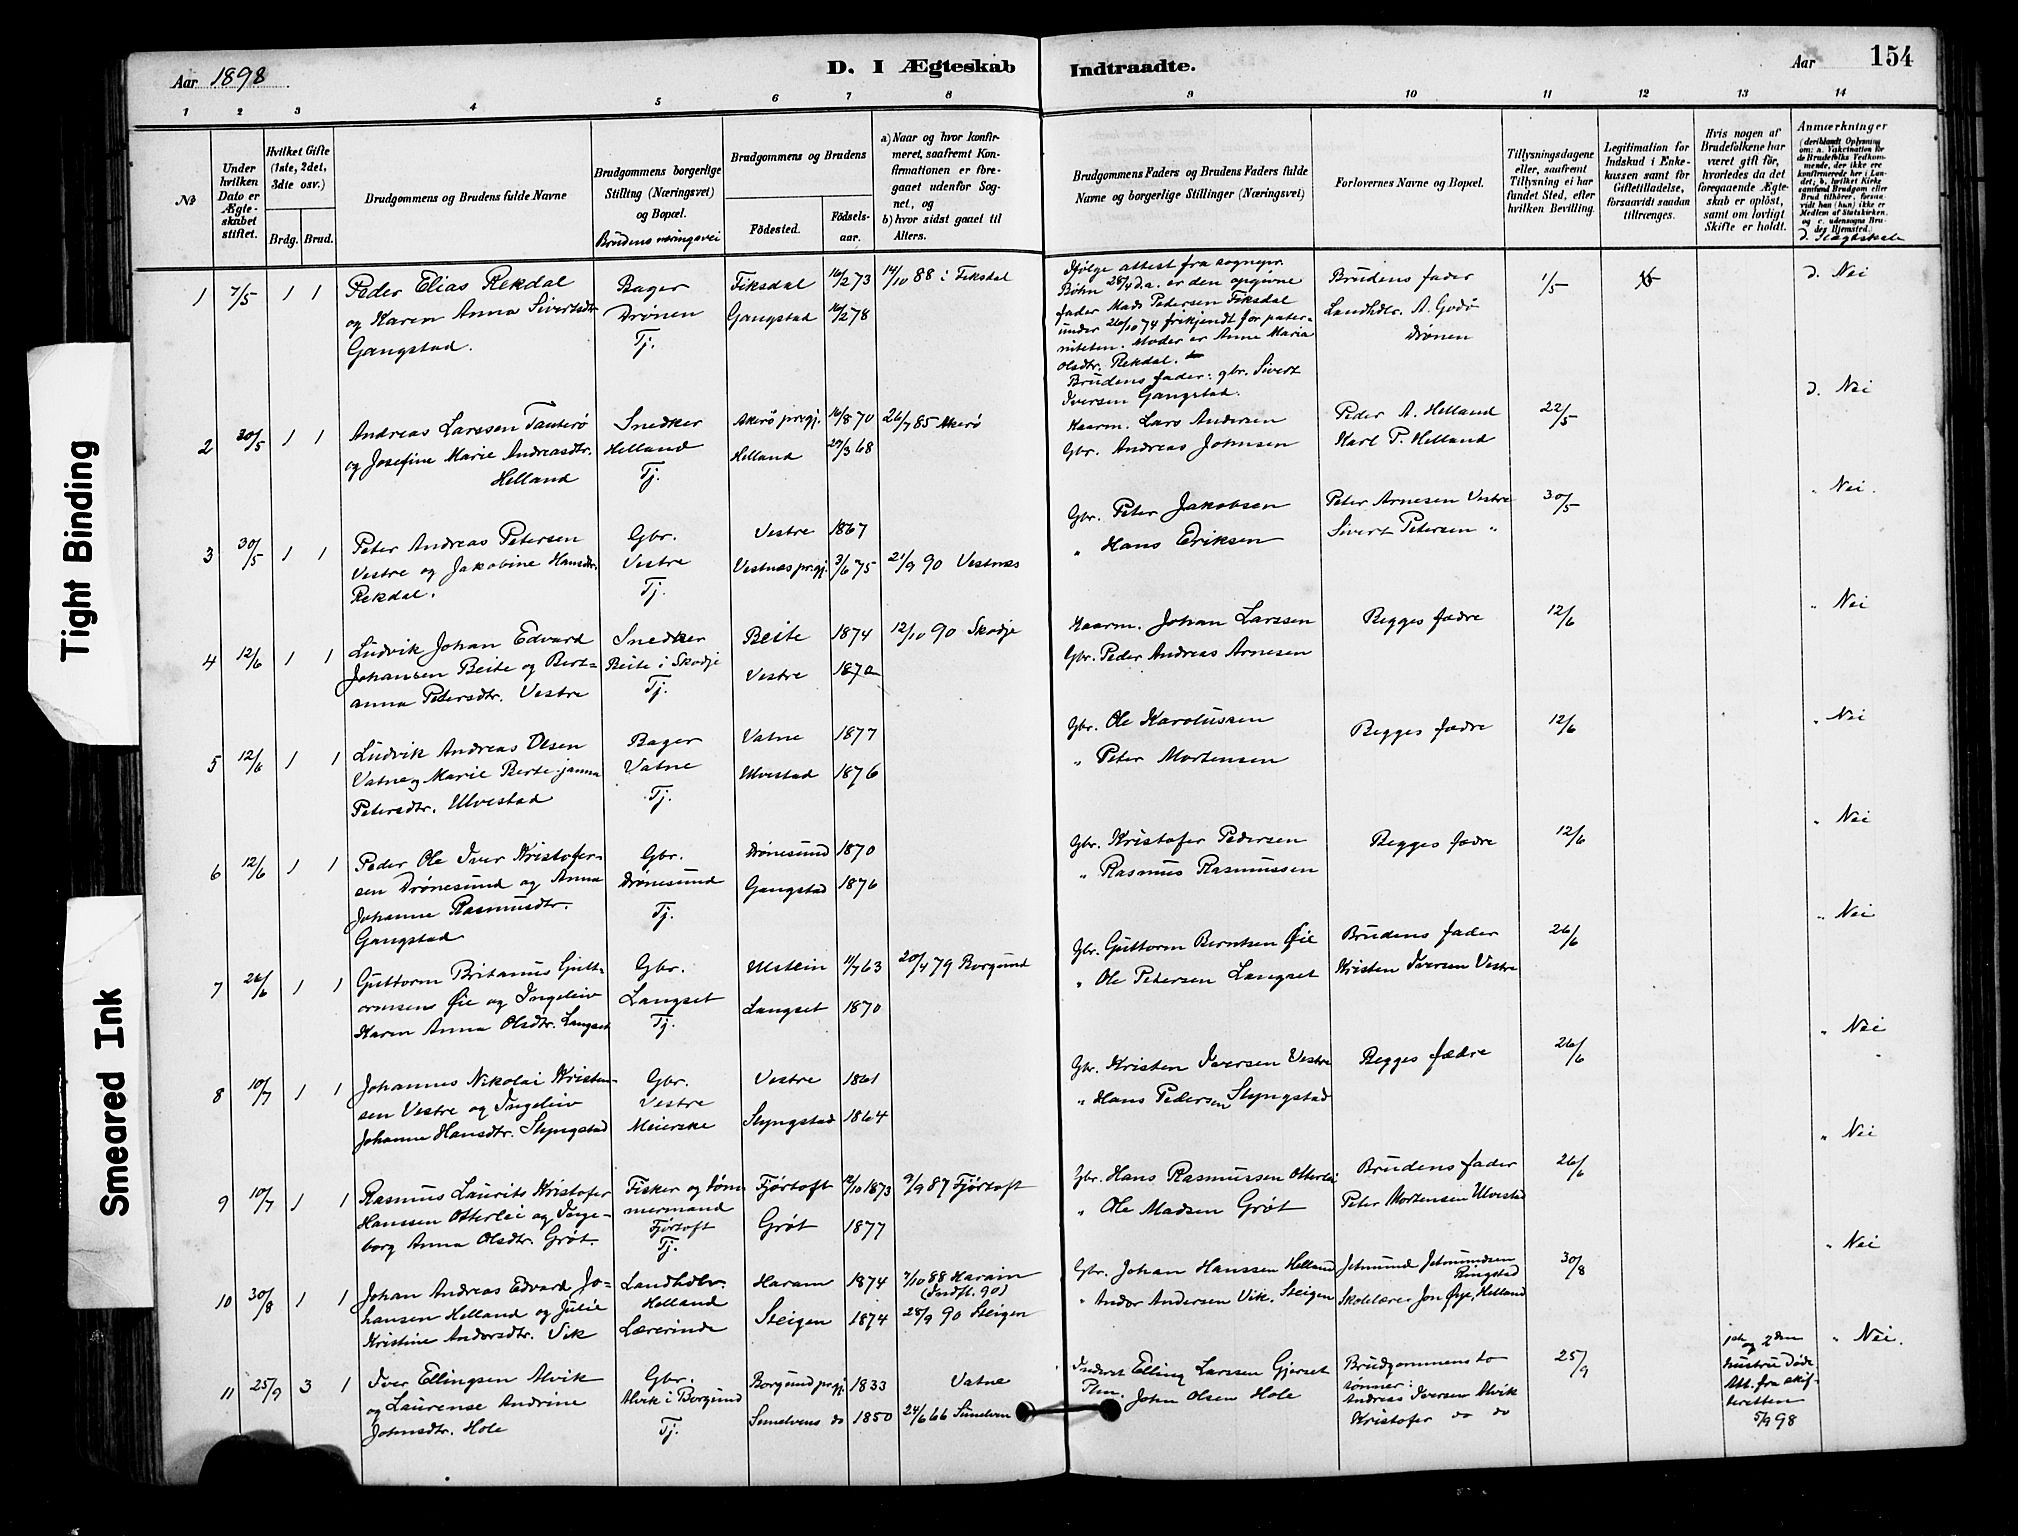 Aar 1898
D. I Ægteskab Indtraadte.
Aar
154
1 2 3 4 5 6 7 8 9 10 11 12 13 14
No
Under hvilken Dato er Ægteskabet stiftet.
Hvilket Gifte (1ste, 2det, 3dte osv.)
Brdg. Brud.
Brudgommens og Brudens fulde Navne
Brudgommens borgerlige Stilling (Næringsvei) og Bopæl.
Brudens næringsvei
Brudgommens og Brudens
Fødested.
Fødselsaar.
a) Naar og hvor konfirmeret, saafremt Konfirmationen er foregaaet udenfor Sognet, og
b) hvor sidst gaaet til Alters.
Brudgommens Faders og Brudens Faders fulde Navne og borgerlige Stillinger (Næringsvei)
Forlovernes Navne og Bopæl.
Tillysningsdagene eller, saafremt Tillysning ei har fundet Sted, efter hvilken Bevilling.
Legitimation for Indskud i Enkekassen samt for Giftetilladelse, forsaavidt saadan tiltrænges.
Hvis nogen af Brudefolkene har været gift før, hvorledes da det foregaaende Ægteskab er opløst, samt om lovligt Skifte er holdt.
Anmærkninger (deriblandt Oplysning om: a. Vakcination for de Brudefolks Vedkommende, der ikke ere konfirmerede her i Landet; b. hvilket Kirkesamfund Brudgom eller Brud tilhører, forsaavidt han (hun) ikke er Medlem af Statskirken, og c. udensogns Brudes Hjemsted.)
d. Slægtskab
1 7/5 1 1
Peder Elias Rekdal
og Karen Anna Sivertsdtr.
Gangstad.
Bager
Drönen
Tj.
Fiksdal 16/2 73 14/10 88 i Fiksdal
Gangstad 16/2 78
Ifølge attest fra sognepr.
Böhn 28/4 d.a. er den opgivne
fader Mads Pedersen Fiksdal
under 26/10 74 frikjendt for paterniteten. Moder er Anne Maria
Olsdtr. Rekdal.
Brudens fader: gbr. Sivert
Iversen Gangstad.
Brudens fader
Landhdlr. A. Godö
Drönen
1/5
d. Nei
2 30/5 1 1
Andreas Larssen Tauterö
og Josefine Marie Andreasdtr.
Helland
Snedker
Helland
Tj.
Akerö prgj. 16/8 70 26/7 85 Akerö
Helland 27/3 68
Kaarm. Lars Andersen
Gbr. Andreas Johnsen
Peder A. Helland
Karl P. Helland
22/5
d. Nei
3 30/5 1 1
Peter Andreas Petersen
Vestre og Jakobine Hansdtr.
Rekdal.
Gbr.
Vestre
Tj.
Vestre 1867
Vestnes prgj. 3/6 75 21/9 90 Vestnæs
Gbr. Peter Jakobsen
" Hans Eriksen
Peter Arnesen Vestre
Sivert Petersen "
30/5
" Nei.
4 12/6 1 1
Ludvik Johan Edvard
Johansen Beite og Bertanna Petersdtr. Vestre
Snedker
Beite i Skodje
Tj.
Beite 1874 12/10 90 Skodje
Vestre 1870
Kaarm. Johan Larssen
Gbr. Peder Andreas Arnesen
Begges fædre
12/6
" Nei
5 12/6 1 1
Ludvik Andreas Olsen
Vatne og Marie Bertejanna
Petersdtr. Ulvestad
Bager
Vatne
Tj.
Vatne 1877
Ulvestad 1876
Gbr. Ole Karolussen
" Peter Mortensen
Begges fædre
12/6
" Nei
6 12/6 1 1
Peder Ole Iver Kristofersen Drönesund og Anna
Johanne Rasmusdtr.
Gangstad
Gbr.
Drönesund
Tj.
Drönesund 1870
Gangstad 1876
Gbr. Kristofer Pedersen
" Rasmus Rasmussen
Begges fædre
12/6
" Nei
7 26/6 1 1
Guttorm Britanus Guttormsen Öie og Ingeleiv
Karen Anna Olsdtr. Langset
Gbr.
Langset
Tj.
Ulstein 11/7 63 20/4 79 Borgund
Langset 1870
Gbr. Guttorm Berntsen Öie
" Ole Petersen Langset
Brudens fader
Kristen Iversen Vestre
26/6
" Nei
8 10/7 1 1
Johannes Nikolai Kristensen Vestre og Ingeleiv
Johanne Hansdtr. Slyngstad
Gbr.
Vestre
Meierske
Vestre 1861
Slyngstad 1864
Gbr. Kristen Iversen Vestre
" Hans Pedersen Slyngstad
Begges fædre
26/6
" Nei
9 10/7 1 1
Rasmus Laurits Kristofer
Hanssen Otterlei og Ingeborg Anna Olsdtr. Gröt.
Fisker og tömmermand
Fjörtoft
Tj.
Fjörtoft 12/10 1873 9/9 87 Fjörtoft
Gröt 1877
Gbr. Hans Rasmussen Otterlei
" Ole Madsen Gröt
Brudens fader
Peter Mortensen Ulvestad
26/6
" Nei
10 30/8 1 1
Johan Andreas Edvard Johansen Helland og Julie
Kristine Andorsdtr. Vik
Landhdlr.
Helland
Lærerinde
Haram 1874 7/10 88 Haram
(Indfl. 90)
Steigen 1874 28/9 90 Steigen
Gbr. Johan Hanssen Helland
" Andor Andersen Vik, Steigen
Jetmund Jetmundsen
Ringstad
Skolelærer Jon Öye, Helland
30/8
" Nei
11 25/9 3 1
Iver Ellingsen Alvik
og Laurense Andrine
Johnsdtr. Hole
Gbr.
Alvik i Borgund
Tj.
Borgund prgj. 1833 Vatne
Sunelvens do 1850 24/6 66 Sunelven
Inderst Elling Larssen Gjerset
Plm. John Olsen Hole
Brudgommens to
sönner:
Andreas Iversen Alvik
Kristofer do do
25/9
1ste og 2den
hustru döde.
Att. fra skifteretten
5/9 98
" Nei.
Tight Binding
Smeared Ink